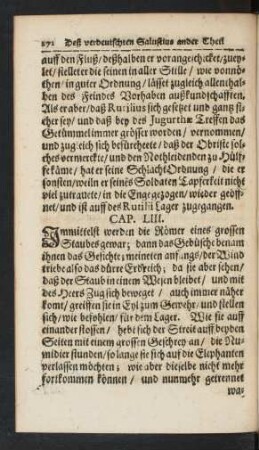 272 Deß verdeutschten Salustius ander Theil
auff den Fluß/ deßhalben er vorangeschicket/ zuey-
let/ stelleter die seinen in aller Stille/ wie vonnö-
then/ in guter Ordnung/ lässet zugleich allenthal-
ben des Feindes Vorhaben außkundschafften.
Als er aber/ daß Rutilius sich gesetzet und gantz si-
cher sey/ und daß bey des Jugurthæ Treffen das
Getümmel immer grösser worden/ vernommen/
und zugleich sich befürchtete/ daß der Obriste sol-
ches vermerckte/ und den Nothleidenden zu Hülf-
fe käme/ hat er seine Schlacht Ordnung/ die er
sonsten/ weiln er seines Soldaten Tapferkeit nicht
viel zutrauete/ in die Enge gezogen/ wieder geöff-
net/ und ist auff des Rutilii Lager zugegangen.
CAP. LIII.
Immittelst werden die Römer eines grossen
Staubes gewar; dann das Gebüsche benam
ihnen das Gesichte; meineten anfangs/ der Wind
triebe also das dürre Erdreich; da sie aber sehen/
daß der Staub in einem Wesen bleibet/ und mit
des Heers Zug sich beweget/ auch immer näher
komt/ greiffen sie in Eyl zum Gewehr/ und stellen
sich/ wie befohlen/ für dem Lager. Wie sie auff
einander stossen/ hebt sich der Streit auff beyden
Seiten mit einem grossen Geschrey an/ die Nu-
midier stunden/ so lange sie sich auf die Elephanten
verlassen möchten; wie aber dieselbe nicht mehr
fortkommen können/ und nunmehr getrennet
wa-